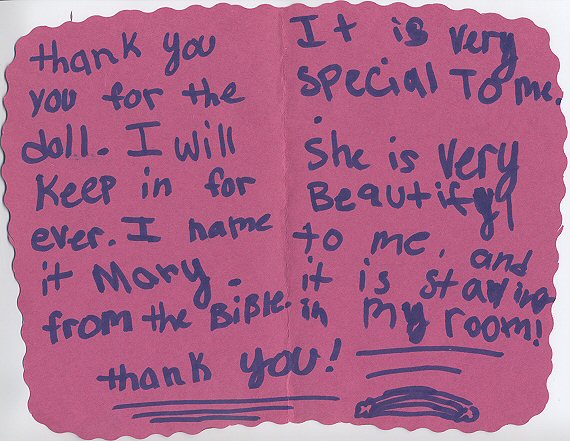 thank you
you for the
doll. I will
keep in for
ever. I name
it Mary.
from the Bible.
thank you!
It is very
special To me.
.
she is very
Beautify
to me. and
it is staying
in my room!